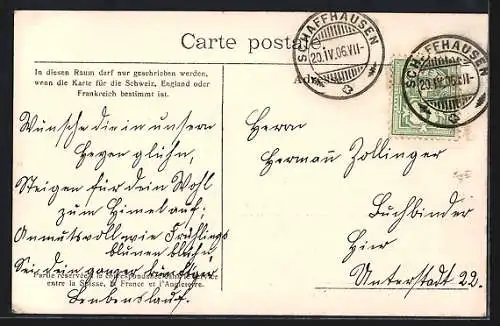 Carte postale
SCHAFFHAUSEN
20.IV.06.VII-
SCHAFFHAUSEN
20.IV.06.VII-
In diesen Raum darf nur geschrieben werden,
wenn die Karte für die Schweiz, England oder
Frankreich bestimmt ist.
Wünsche die in unsern
Herzen glühn,
Steigen für dein Wohl
zum Himel auf;
Anmutsvoll wie Frühlings
blumen blühn
Sei dein ganzer künftger
Partie réservée à la correspondance
entre la Suisse, la France et l'Angleterre.
Lebenslauf.
Herrn
Hermann Zollinger
Buchbinder
Hier
Unterstadt 22.